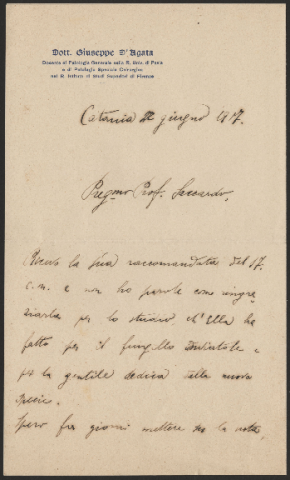 Dott. Giuseppe D'Agata
Docente di Patologia Generale nella R. Univ. di Pavia
e di Patologia Speciale Chirurgica
nel R. Istituto di Studi Superiori di Firenze
Catania giugno 1917.
Preg.mo Prof. Saccardo,
Ricevo la Sua raccomandata del 17.
c.m. e non ho parole come ringra
ziarla per lo studio, ch'Ella ha
fatto per il funghello e
per la gentile dedica alla nuova
specie.
Spero fra giorni mettere la nota,